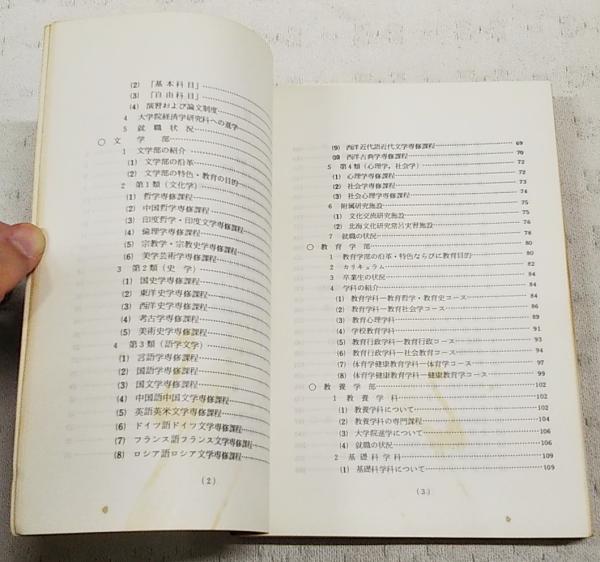 (2) 「基本科目」
(3) 「自由科目」
(4) 演習および論文制度
4 大学院経済学研究科への進学
5 就職状況
○ 文学部
1 文学部の紹介
(1) 文学部の沿革
(2) 文学部の特色・教育の目的
2 第1類（文化学）
(1) 哲学専修課程
(2) 中国哲学専修課程
(3) 印度哲学・印度文学専修課程
(4) 倫理学専修課程
(5) 宗教学・宗教史学専修課程
(6) 美学芸術学専修課程
3 第2類（史学）
(1) 国史学専修課程
(2) 東洋史学専修課程
(3) 西洋史学専修課程
(4) 考古学専修課程
(5) 美術史学専修課程
4 第3類（語学文学）
(1) 言語学専修課程
(2) 国語学専修課程
(3) 国文学専修課程
(4) 中国語中国文学専修課程
(5) 英語英米文学専修課程
(6) ドイツ語ドイツ文学専修課程
(7) フランス語フランス文学専修課程
(8) ロシア語ロシア文学専修課程
(2)
(9) 西洋近代語近代文学専修課程 69
(10) 西洋古典学専修課程 70
5 第4類（心理学，社会学） 72
(1) 心理学専修課程 72
(2) 社会学専修課程 74
6 附属研究施設 75
(1) 文化交流研究施設 75
(2) 北海文化研究常呂実習施設 76
7 就職の状況 78
○ 教育学部 80
1 教育学部の沿革・特色ならびに教育目的 80
2 カリキュラム 82
3 卒業生の状況 84
4 学科の紹介
(1) 教育学科―教育哲学・教育史コース
(2) 教育学科―教育社会学コース
(3) 教育心理学科 89
(4) 学校教育学科 91
(5) 教育行政学科―教育行政コース 93
(6) 教育行政学科―社会教育コース 94
(7) 体育学健康教育学科―体育学コース 97
(8) 体育学健康教育学科―健康教育学コース 99
○ 教養学部 102
1 教養学科 102
(1) 教養学科について 102
(2) 教養学科の専門課程 104
(3) 大学院進学について 106
(4) 就職の状況 106
2 基礎科学科 109
(1) 基礎科学科について 109
(3)